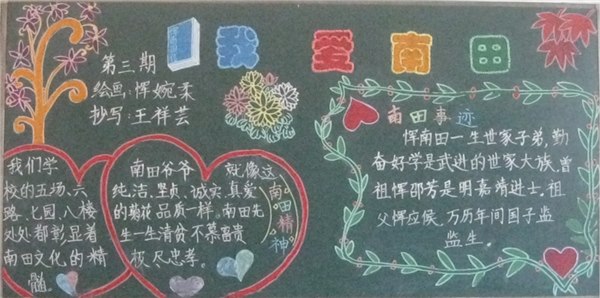 我爱南田
第三期
绘画:恽婉柔
抄写:王祥芸
我们学
校的五场、六
路、七园、八楼
处处都彰显着
南田文化的精
髓。
南田爷爷
就像这
纯洁、坚贞、诚实、真爱
的菊花品质一样。南田先
生一生清贫不慕富贵
极尽忠孝。
南田精神
南田事迹
恽南田一生世家子弟,勤
奋好学是武进的世家大族,曾
祖恽邵芳是明嘉靖进士,祖
父恽应候,万历年间国子监
监生。